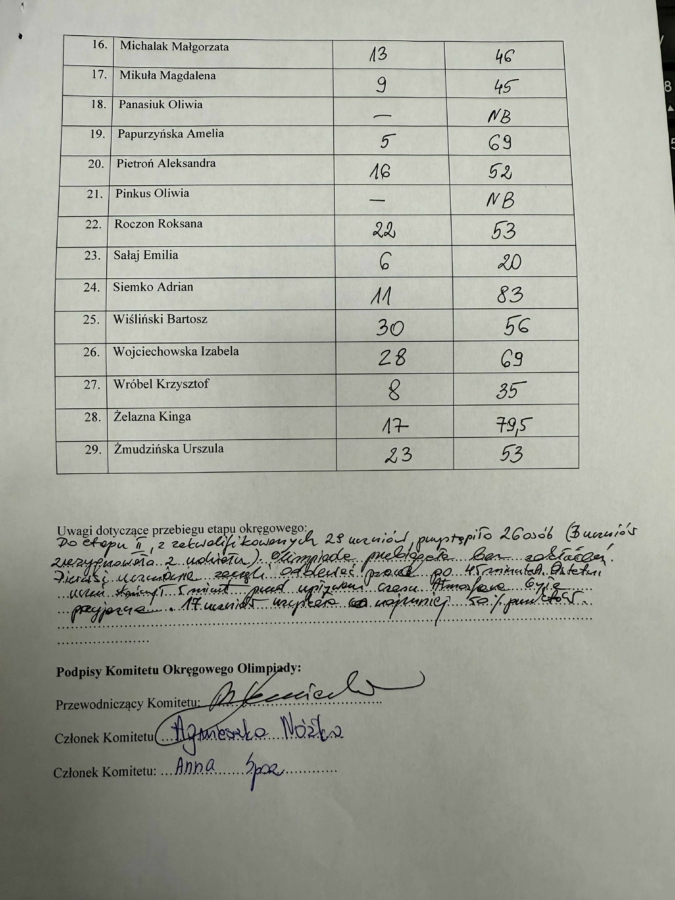 16. Michalak Małgorzata 13 46
17. Mikuła Magdalena 9 45
18. Panasiuk Oliwia — NB
19. Papurzyńska Amelia 5 69
20. Pietroń Aleksandra 16 52
21. Pinkus Oliwia — NB
22. Roczon Roksana 22 53
23. Sałaj Emilia 6 20
24. Siemko Adrian 11 83
25. Wiśliński Bartosz 30 56
26. Wojciechowska Izabela 28 69
27. Wróbel Krzysztof 8 35
28. Żelazna Kinga 17 79,5
29. Żmudzińska Urszula 23 53
Uwagi dotyczące przebiegu etapu okręgowego:
Do etapu II, z zakwalifikowanych 29 uczniów, przystąpiło 26 osób (3 uczniów
zrezygnowało z udziału). Olimpiada przebiegała bez zakłóceń.
Pierwsi uczniowie zaczęli oddawać prace po 45 minutach. Ostatni
uczeń skończył 5 minut przed upływem czasu. Atmosfera była
przyjazna. 17 uczniów uzyskało co najmniej 50% punktów.
Podpisy Komitetu Okręgowego Olimpiady:
Przewodniczący Komitetu:
Członek Komitetu: Agnieszka Nóżka
Członek Komitetu: Anna Spoz